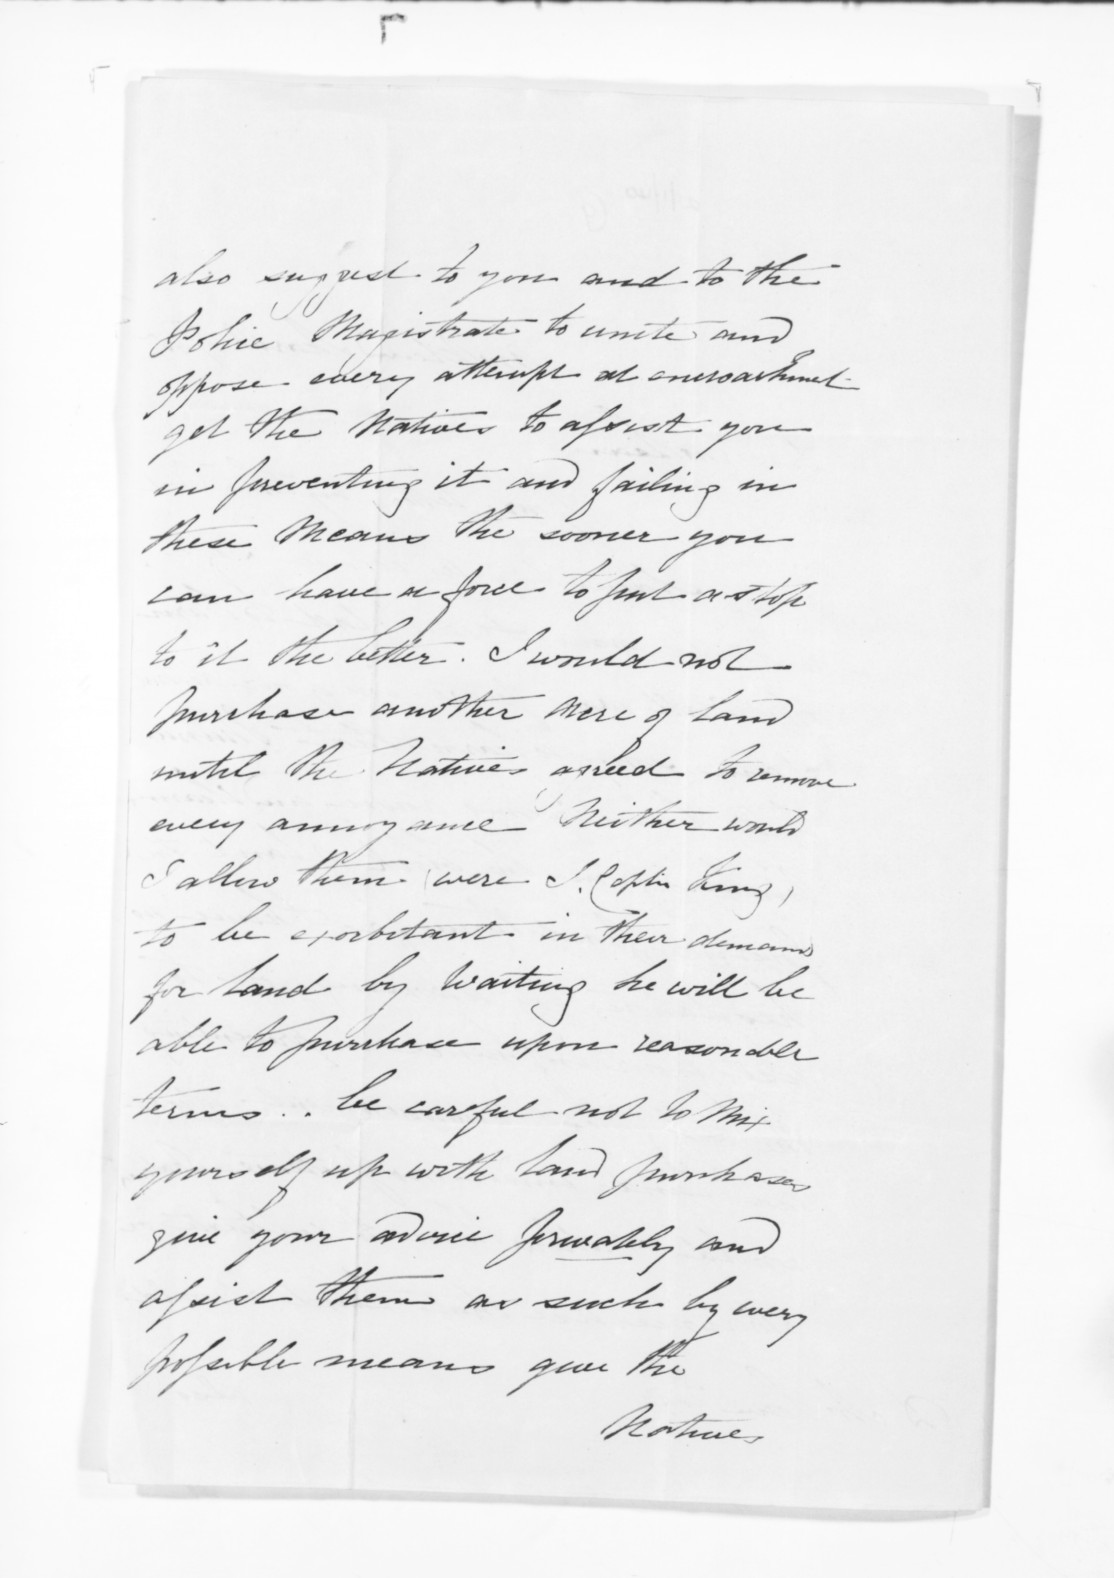 also suggest to you and to the
Police Magistrate to unite and
oppose every attempt at encroachment
get the Natives to assist you
in preventing it and failing in
these means the sooner you
can have a force to put a stop
to it the better. I would not
purchase another acre of land
until the Natives agreed to remove
every annoyance Neither would
I allow them (were I. Captn King)
to be exorbitant in their demands
for land by waiting he will be
able to purchase upon reasonable
terms .. be careful not to mix
yourself up with land purchases
give your advice privately and
assist them as such by every
possible means give the
Natives